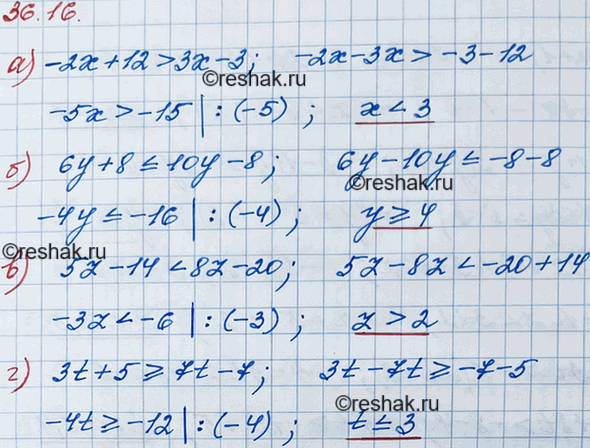 36.16.
а) -2x+12>3x-3; -2x-3x>-3-12
©reshak.ru
-5x>-15|:(-5) ; x<3
б) 6y+8≤10y-8; 6y-10y≤-8-8
©reshak.ru
-4y≤-16|:(-4) ; y≥4
©reshak.ru
в) 5z-14<8z-20; 5z-8z<-20+14
-3z<-6|:(-3) ; z>2
г) 3t+5≥7t-7; 3t-7t≥-7-5
©reshak.ru
-4t≥-12|:(-4) ; t≤3